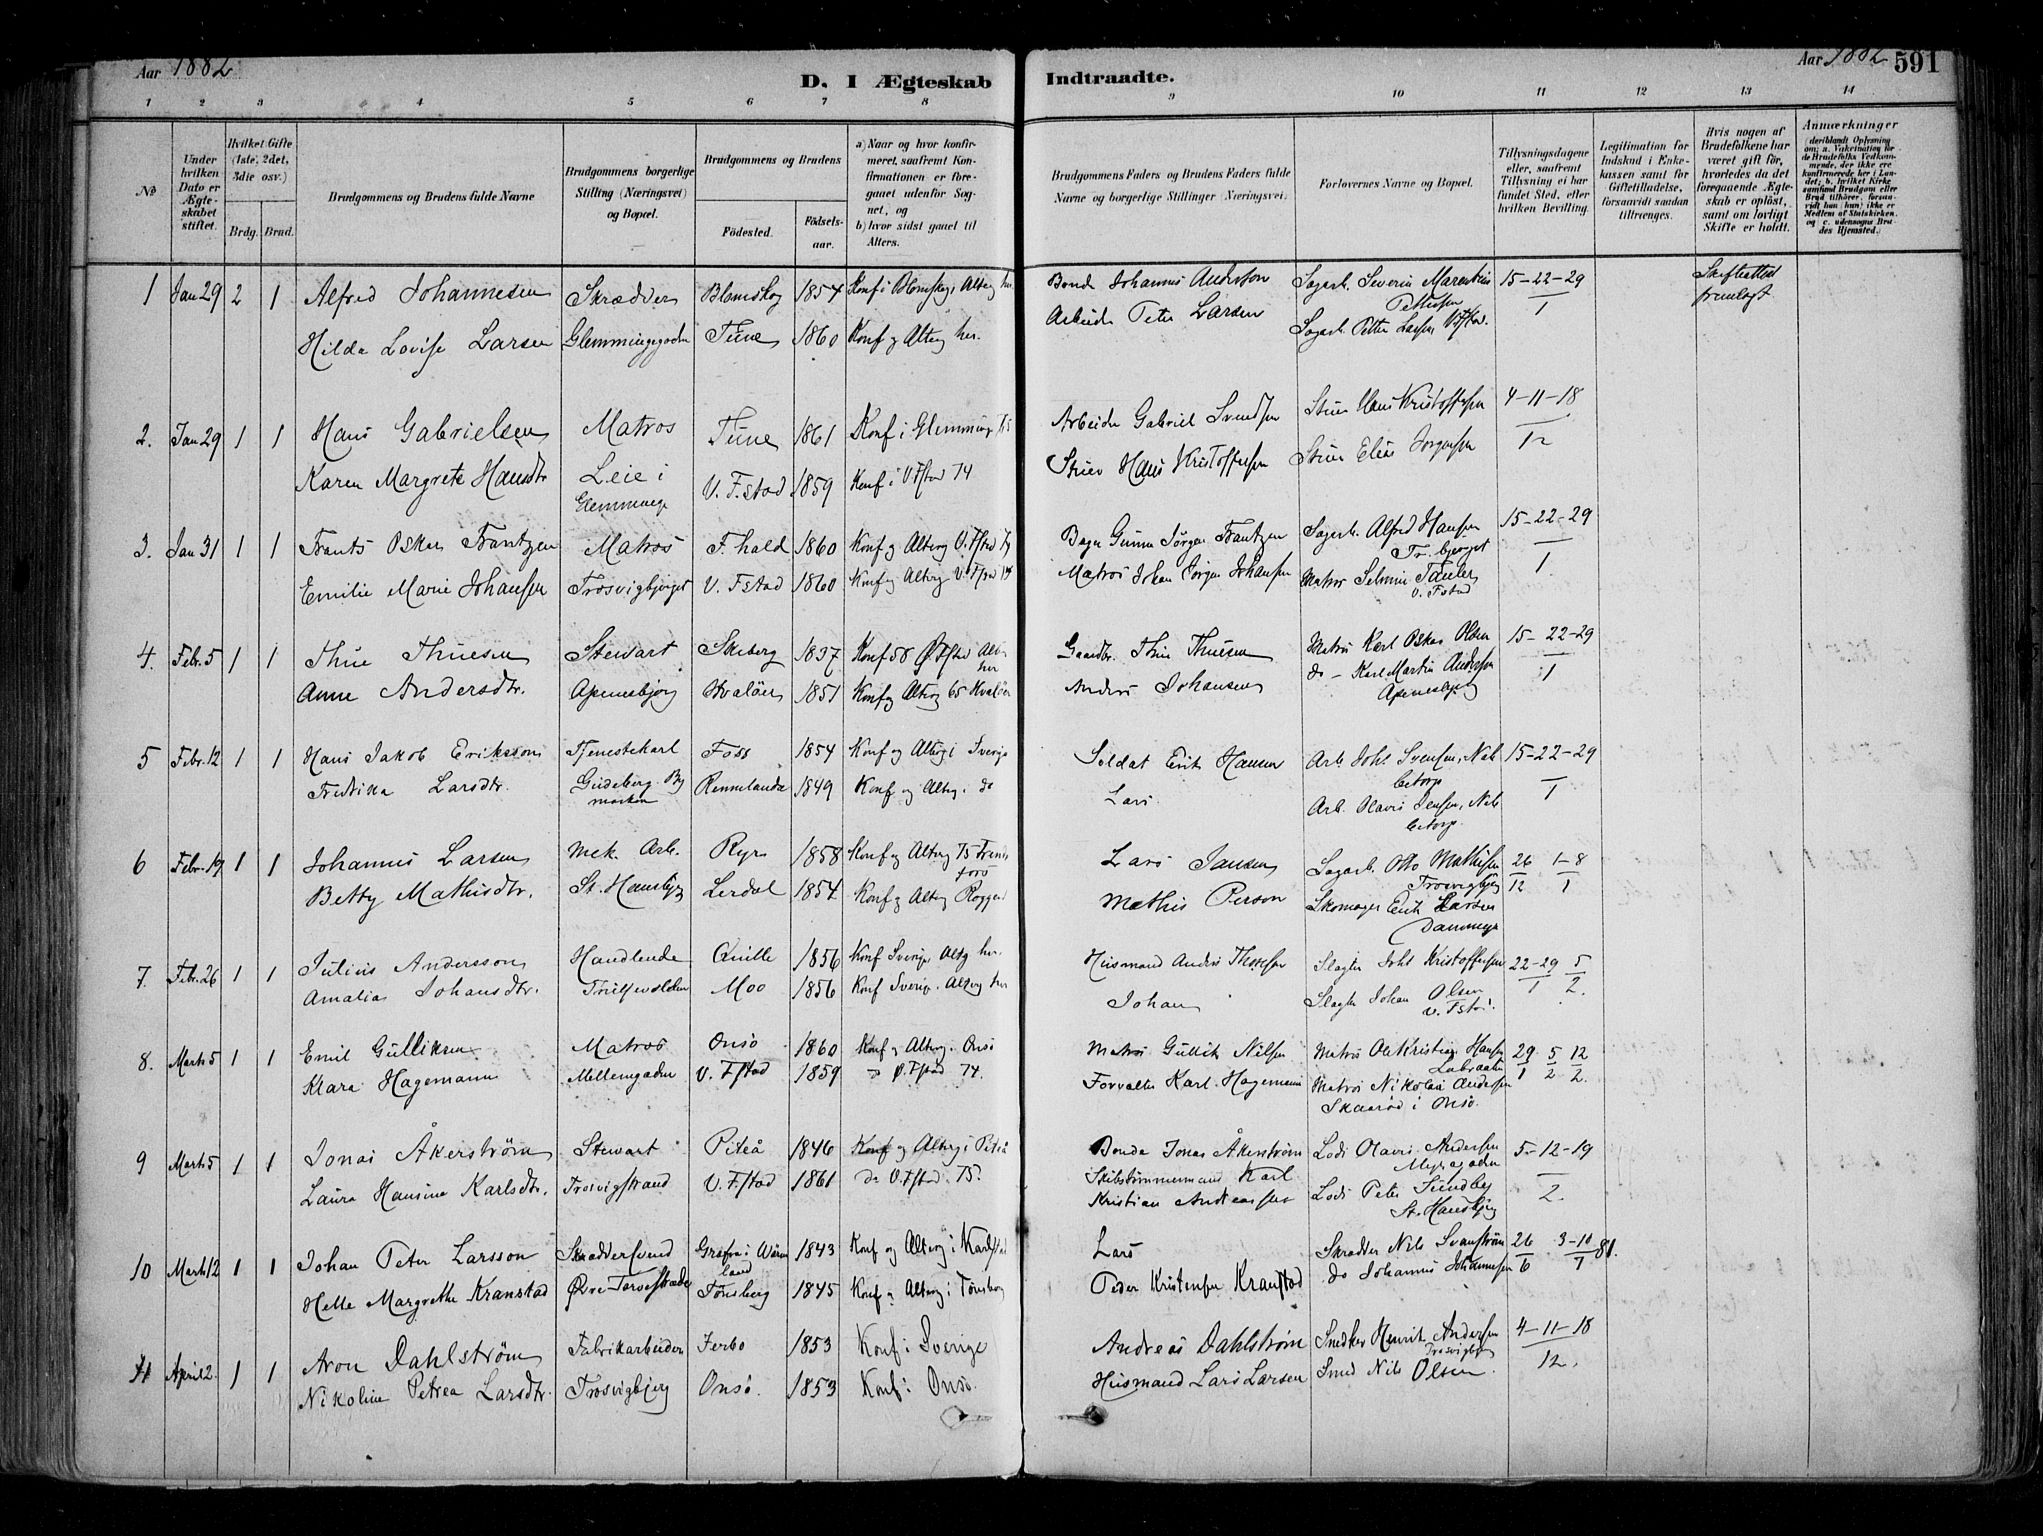 Aar 1882
D. I Ægteskab
Indtraadte.
Aar 1882 591
1 2 3 4 5 6 7 8 9 10 11 12 13 14
No
Under hvilken Dato er Ægteskabet stiftet.
Hvilket Gifte (1ste, 2det, 3die osv.)
Brdg. Brud.
Brudgommens og Brudens fulde Navne
Brudgommens borgerlige Stilling (Næringsvei) og Bopæl.
Brudgommens og Brudens
Födested.
Födselsaar.
a) Naar og hvor konfirmeret, saafremt Konfirmationen er foregaaet udenför Sognet, og
b) hvor sidst gaaet til Alters.
Brudgommens Faders og Brudens Faders fulde Navne og borgerlige Stillinger (Næringsvei).
Forlovernes Navne og Bopæl.
Tillysningsdagene eller, saafremt Tillysning ei har fundet Sted, efter hvilken Bevilling.
Legitimation for Indskud i Enkekassen samt for Giftetilladelse, forsaavidt saadan tiltrænges.
Hvis nogen af Brudefolkene har været gift för, hvorledes da det foregaaende Ægteskab er oplöst, samt om lovligt Skifte er holdt.
Anmærkninger (deriblandt Oplysning om: a. Vakcination for de Brudefolks Vedkommende, der ikke ere konfirmerede her i Landet; b. hvilket Kirkesamfund Brudgom eller Brud tilhörer, forsaavidt han (hun) ikke er Medlem af Statskirken, og c. udensogns Brudes Hjemsted.)
1 Jan 29 2 1 Alfred Johannesen Skrædder Blomskog 1854 Konf i Blomskog, Alterg her. Bonde Johannes Andersson Sagarb. Severin Marentius Pettersen 15-22-29 / 1 Skifteattest fremlagt
Hilda Lovise Larsen Glemmingegaden Tune 1860 Konf og Alterg her. Arbeider Peter Larsen Sagarb. Petter Larsen V.Fstad.
2. Jan 29 1 1 Hans Gabrielsen Matros Tune 1861 Konf i Glemminge 75 Arbeider Gabriel Svendsen Stuer Hans Kristoffersen 4-11-18 / 12
Karen Margrete Hansdtr Leie i Glemminge V. F.stad 1859 Konf i V.Fstad 74 Stuer Hans Kristoffersen Stuer Elias Jorgensen
3. Jan 31 1 1 Frants Oskar Frantzen Matros F.hald 1860 Konf og Alterg V.Fstad Gunnar Jörgen Frantzen Sagarb. Alfred Hansen Tr. bjerget 15-22-29 / 1
Emilie Marie Johansen Trosvigbjerget V. Fstad 1860 Konf og Alterg V.Fstad Matros Johan Jörgen Johansen Matros V. Fstad
4. Febr. 5 1 1 Thue Thuesen Stewart Skeberg 1837 Konf 58 Ø.Fstad Alt her Gaardbr. Thue Thuesen Matros Karl Oskar Olsen 15-22-29 / 1
Anne Andersdtr. Apenesbjerg Hvalöer 1851 Konf og Alterg 65 Hvalöer Anders Johansen do - Karl Martin Andersen Apenesbjerg
5 Febr. 12 1 1 Hans Jakob Eriksson Tjenestekarl Foss 1854 Konf og Alterg i Sverige Soldat Erik Hansen Arb. Johs Svensen, Nabbetorp 15-22-29 / 1
Fredrika Larsdtr. Gudeberg Bymarken Rennelanda 1849 Konf og Alterg. i do Lars. Arb. Olavus Jensen, Nabbetorp.
6 Febr. 19 1 1 Johannes Larsen Mek. Arb. Ryr 1858 Konf og Alterg 75 Lars Jansen Sagarb. Otto Mathisen Trosvigbjerg 26/12 1-8/1
Betty Mathisdtr. St. Hansbjerg Lerdal 1854 Konf og Alterg Mathis Person Skomager Erik Larsen
7. Febr. 26 1 1 Julius Andersson Handlende Quille 1856 Konf Sverige Alterg her. Husmand Anders Thoresen Slagter Johs Kristoffersen 22-29/1 5/2
Amalia Johansdtr. Moo 1856 Konf Sverig. Alterg her Johan Slagter Johan Olsen V. Fstad
8. Marts 5 1 1 Emil Gulliksen Matros Onsö 1860 Konf og Alterg. Onsö Matros Gullik Nilsen Matros Ole Kristian Hansen Labraaten 29/1 5/2 12/2
Klara Hagemann Mellemgaden V. Fstad 1859 do V.Fstad 74. Forvalter Karl Hagemann Matros Nikolai Andersen Skaaröd i Onsö.
9 Marts 5 1 1 Jonas Åkerström Stewart Piteå 1846 Konf og Alterg i Piteå Bonde Jonas Åkerström Lods Olavus Andersen 5-12-19 / 2.
Laura Hansine Karlsdtr. Trosvigstrand V. Fstad 1861 do V.Fstad. 75. Skibstömmermand Karl Kristian Andreassen Lods Peter Sundbg St. Hansbjerg
10 Marts 12 1 1 Johan Peter Larsson Skræddersvend Grafva i Wermland 1843 Konf og Alterg i Karlstad Lars Skrædder Nils Svanström 26/6 3-10/7 81.
Helle Margrethe Kranstad Øvre Torvestræde Tönsberg 1845 Konf og Alterg i Tönsberg Peder Kristensen Kranstad do Johannes Johannesen
11 April 2. 1 1 Aron Dahlström Fabrikarbeider Jerbo 1853 Konf i Sverige Andreas Dahlström Snedker Henrik Andersen Trosvigberg 4-11-18 / 12.
Nikoline Petrea Larsdtr. Trosvigbjerg Onsö. 1853 Konf i Onsö. Husmand Lars Larsen Smed Nils Olsen